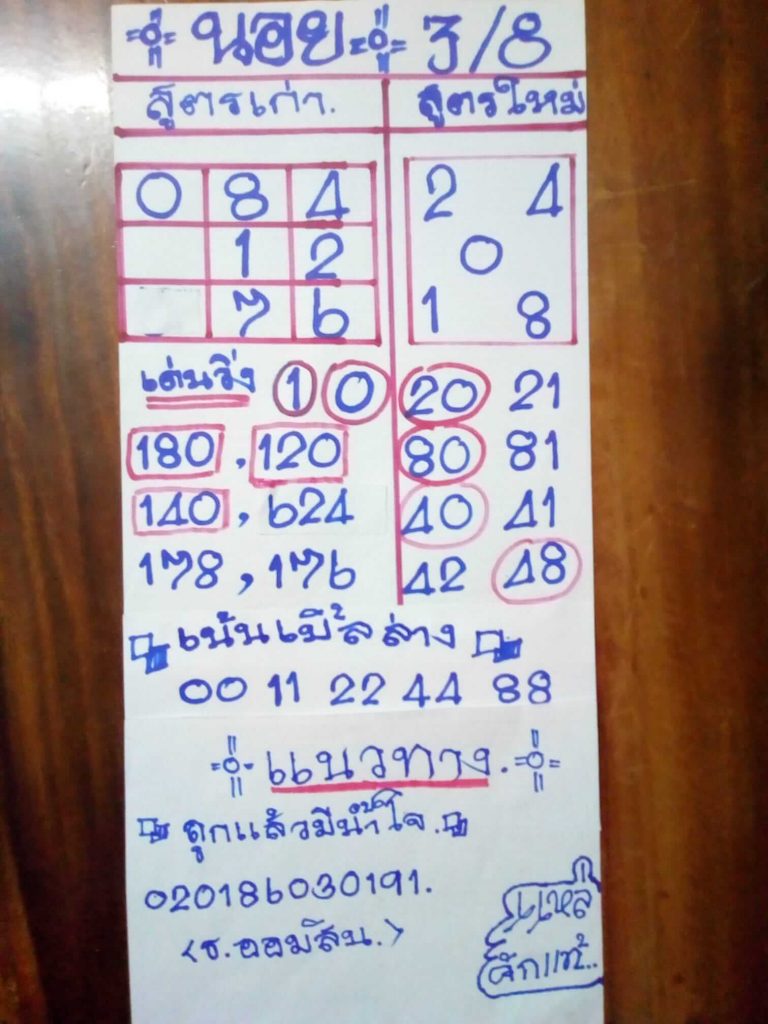 นอย 3/8
สูตรเก่า. สูตรใหม่
0 8 4
1 2
7 6
2 4
0
1 8
เด่นวิ่ง 1 0
180, 120
140, 624
178, 176
20 21
80 81
40 41
42 48
เน้นเบิ้ลล่าง
00 11 22 44 88
แนวทาง.
ถูกแล้วมีน้ำใจ.
020186030191.
<ธ.ออมสิน.>